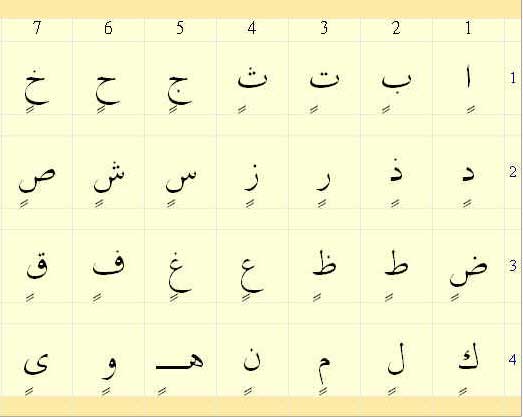 1 2 3 4 5 6 7
1 اٍ بٍ تٍ ثٍ جٍ حٍ خٍ
2 دٍ ذٍ رٍ زٍ سٍ شٍ صٍ
3 ضٍ طٍ ظٍ عٍ غٍ فٍ قٍ
4 كٍ لٍ مٍ نٍ هـٍ وٍ ىٍ